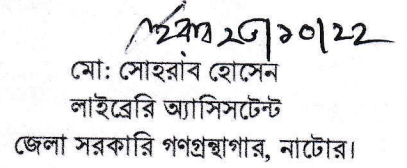 ২৩/১০/২২
মো: সোহরাব হোসেন
লাইব্রেরি অ্যাসিসটেন্ট
জেলা সরকারি গণগ্রন্থাগার, নাটোর।